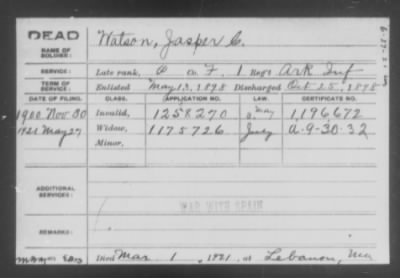 DEAD
NAME OF SOLDIER: Watson, Jasper C.
SERVICE: Late rank, P Co. F. 1 Reg't Ark Inf
TERM OF SERVICE: Enlisted May 13, 1898 Discharged Oct 25, 1898
DATE OF FILING. CLASS. APPLICATION NO. LAW. CERTIFICATE NO.
1900 Nov 30 Invalid, 1258270 1196672
1921 May 27 Widow, 1175726 July A-9-30-32
Minor,
ADDITIONAL SERVICES:
WAR WITH SPAIN
REMARKS:
Died Mar 1, 1921, at Lebanon,